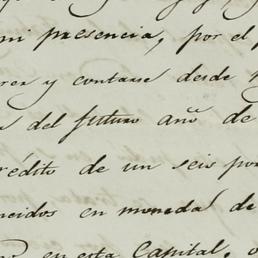 mi presencia, por el
y contarse desde
del futuro año de
rédito de un seis por
en moneda de
en esta Capital,